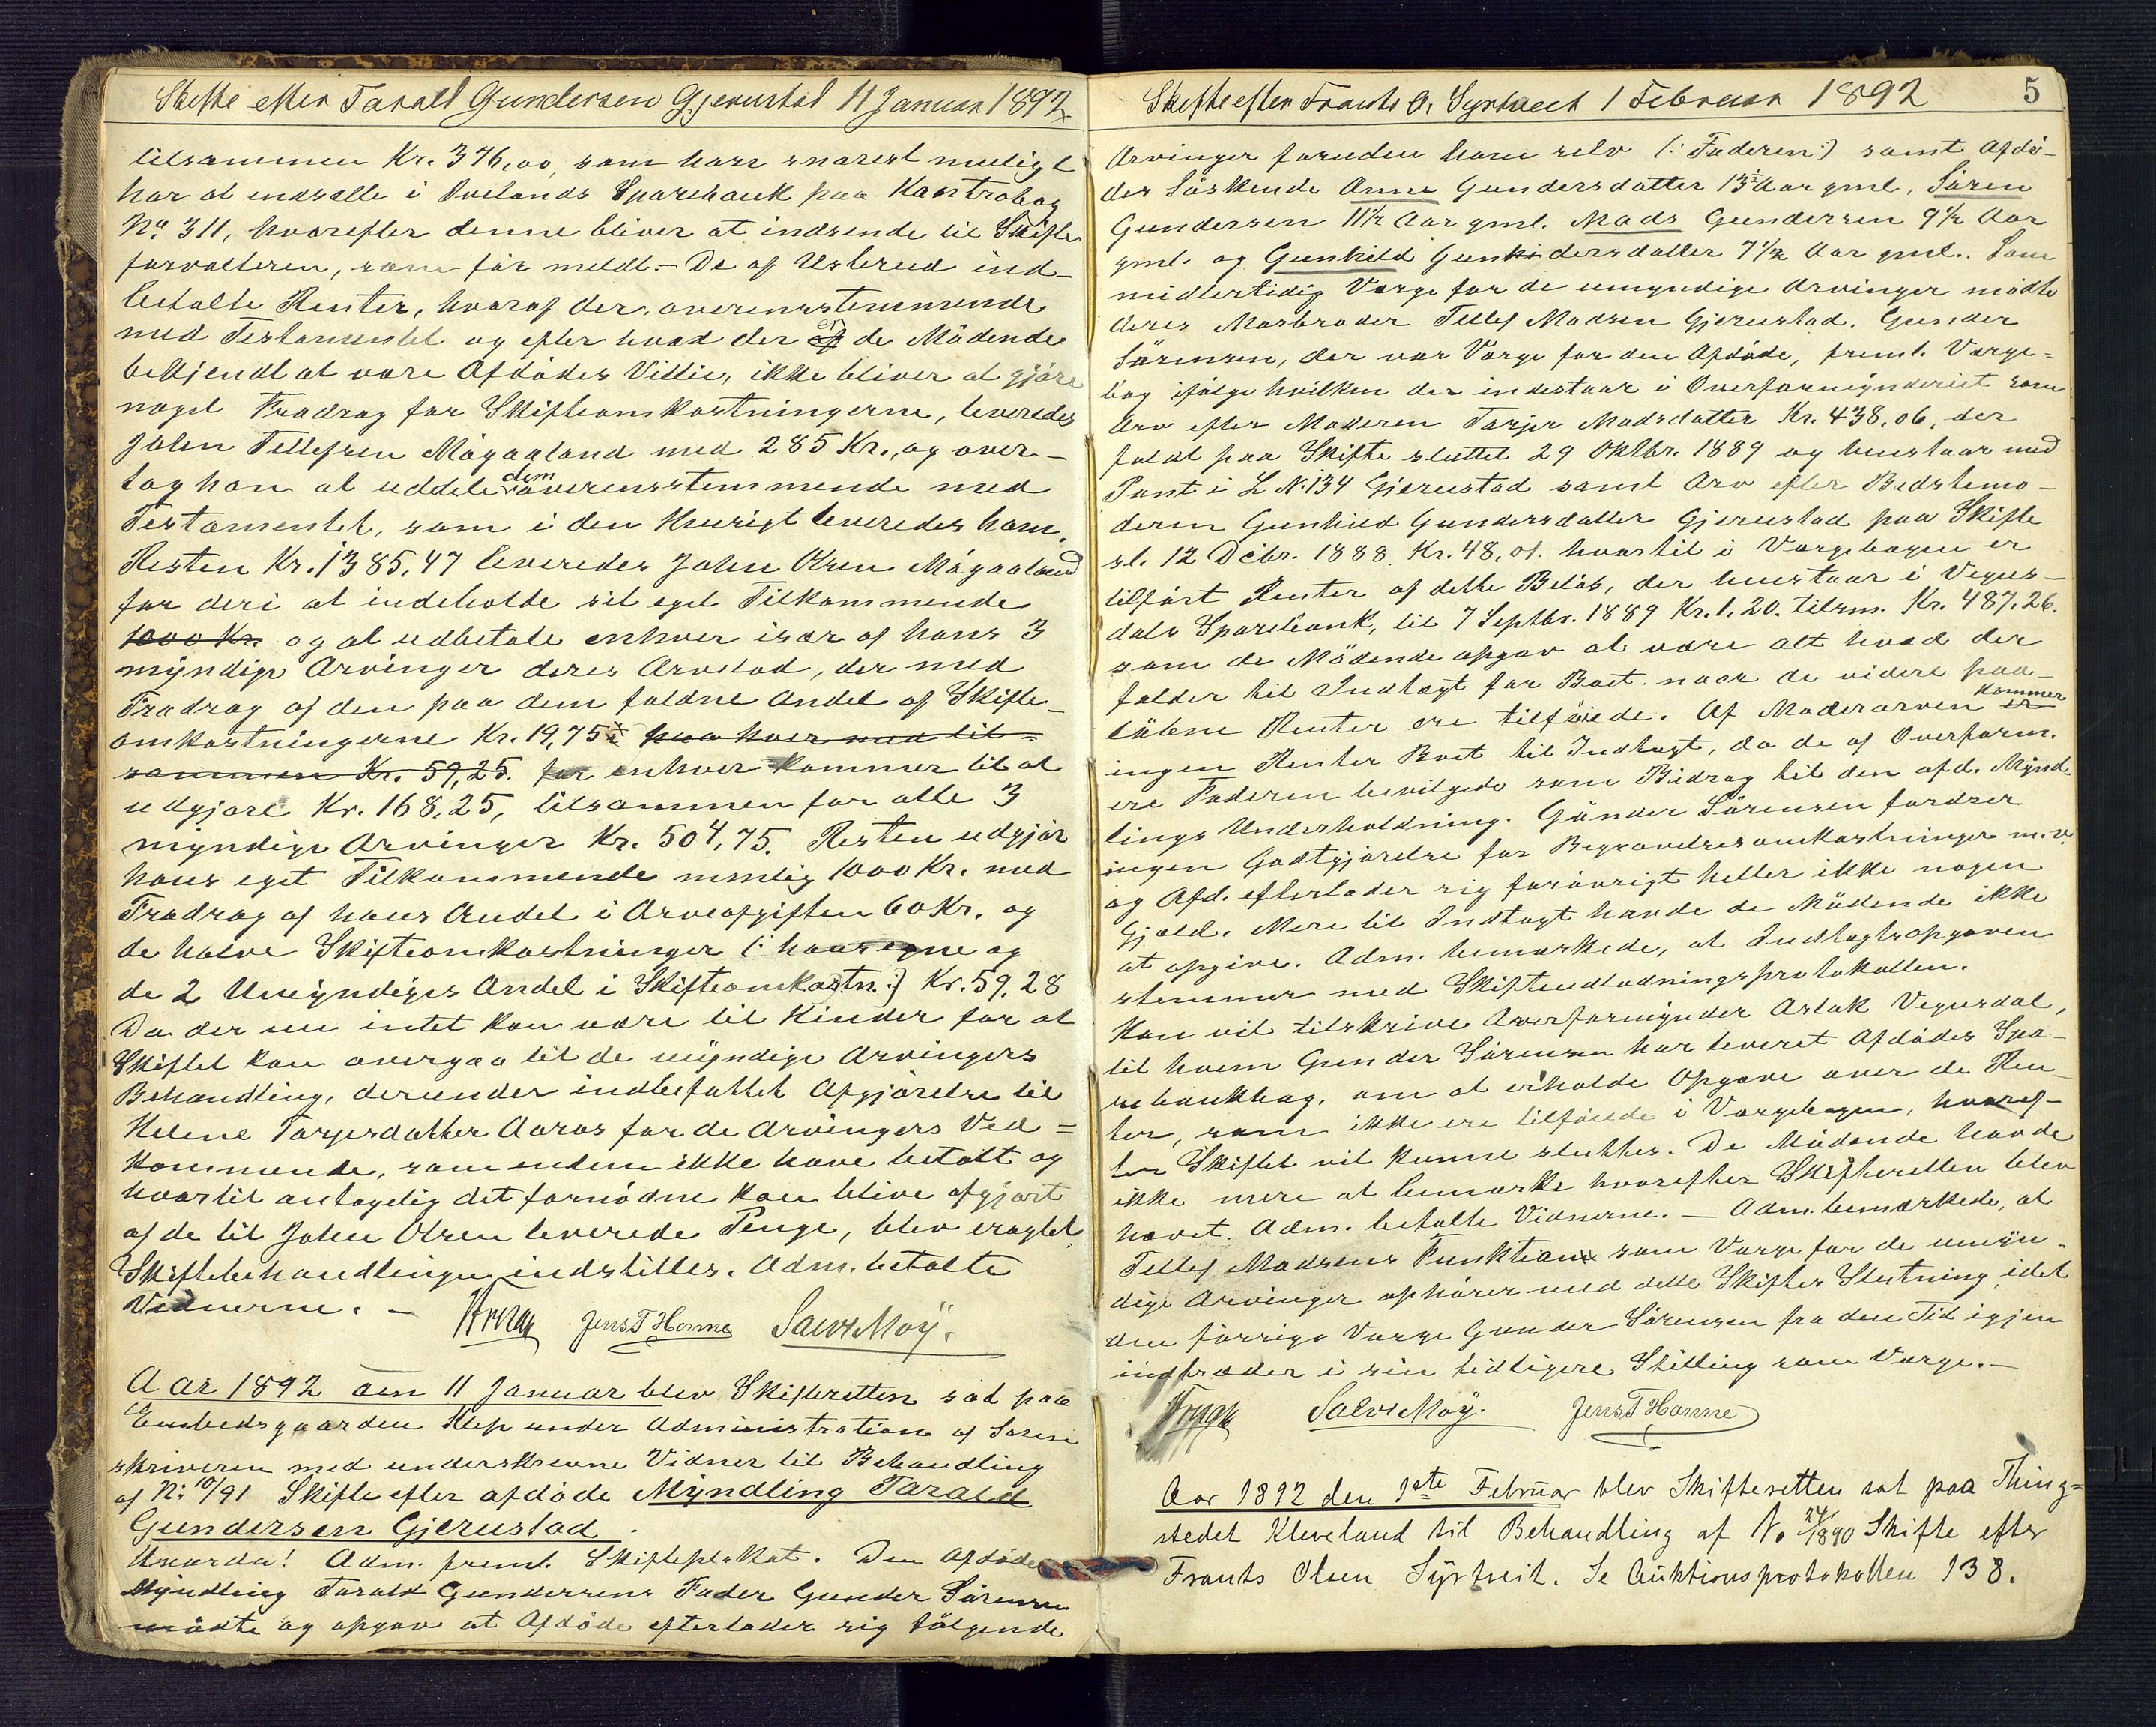 Skifte efter Tarald Gundersen Gjerustad 11 Januar 1892
tilsammen Kr. 376,00, som han snarest muligt
har at indsætte i Ivelands Sparebank paa Kontrabog
No 311, hvorefter denne bliver at indsende til Skifte
forvalteren, som før meldt. – De af Usterud ind-
betalte Renter, hvoraf der, overensstemmende
med Testamentet og efter hvad der er de Mødende
bekjendt at være Afdødes Villie, ikke bliver at gjøre
noget Fradrag for Skifteomkostningerne, leveredes
John Tellefsen Mögaaland med 285 Kr., og over-
tog han at uddele dem overensstemmende med
Testamentet, som i den Henrigt leveredes ham.
Resten Kr. 1385,47 leveredes John Olsen Mögaaland
for deri at indeholde sit eget Tilkommende
1000 Kr. og at udbetale enhver især af hans 3
myndige Arvinger deres Arvelod, der med
Fradrag af den paa dem faldne Andel af Skifte-
omkostningerne Kr. 19,75 paa hver med til-
sammen Kr. 59,25. for enhver kommer til at
udgjøre Kr. 168,25, tilsammen for alle 3
myndige Arvinger Kr. 504,75. Resten udgjør
hans eget Tilkommende nemlig 1000 Kr. med
Fradrag af hans Andel i Arveafgiften 60 Kr. og
de halve Skifteomkostninger (: hans egne og
de 2 Umyndiges Andel i Skifteomkostn. :) Kr. 59,28
Da der nu intet kan være til Hinder for at
Skiftet kan overgaa til de myndige Arvingers
Behandling, derunder indbefattet Afgjørelse til
Helene Torjersdatter Aaros for de Arvingers Ved=
kommende, som endnu ikke have betalt og
hvortil antagelig det fornødne kan blive afgjort
af de til John Olsen leverede Penge, blev eragtet
Skiftebehandlingen indstilles. Adm. betalte
Vidnerne. –
Jens T Homme Salve Moÿ.
Aar 1892 den 11 Januar blev Skifteretten sat paa
Embedsgaarden Klep under Administration af Soren
skriveren med underskrevne Vidner til Behandling
af No 10/91 Skifte efter afdøde Myndling Tarald
Gundersen Gjerustad.
Hvorda! Adm. freml. Skifteplakat. Den Afdøde
Myndling Tarald Gundersens Fader Gunder Sörensen
mødte og opgav at Afdøde efterlader sig følgende
Skifte efter Frants O. Syrtveit 1 Februar 1892 5
Arvinger foruden ham selv (: Faderen :) samt Afdø-
des Söskende Anne Gundersdatter 13½ Aar gml, Sören
Gundersen 11½ Aar gml. Mads Gundersen 9½ Aar
gml. og Gunhild Gundersdatter 7½ Aar gml.. Som
midlertidig Værge for de umyndige Arvinger mødte
deres Morbroder Tellef Madsen Gjerustad. Gunder
Sörensen, der var Værge for den Afdøde, freml. Værge=
bog ifølge hvilken der indestaar i Overformynderiet som
Arv efter Moderen Torjer Madsdatter Kr. 438,06, der
faldt paa Skifte sluttet 29 Oktbr. 1889 og henstaar mod
Pant i L No 134 Gjerustad samt Arv efter Bedstemo-
deren Gunhild Gundersdatter Gjerustad paa Skifte
sl. 12 Dcbr. 1888 Kr. 48,01. hvortil i Værgebogen er
tilført Renter af dette Beløb, der henstaar i Vegus-
dals Sparebank, til 7 Septbr. 1889 Kr. 1.20. tilsm. Kr. 487.26.
som de Mødende opgav at være alt hvad der
falder til Indtægt for Boet. naar de videre paa-
løbne Renter ere tilførede. Af Moderarven kommer
ingen Renter Boet til Indtægt, da de af Overform.
ere Faderen bevilgede som Bidrag til den afd. Mynd-
lings Underholdning. Gunder Sörensen fordrer
ingen Godtgjørelse for Begravelsesomkostninger m.v.
og Afd. efterlader sig forövrigt heller ikke nogen
Gjæld. Mere til Indtægt havde de Mødende ikke
at opgive. Adm. bemærkede, at Indtægtsopgaven
stemmer med Skifteudlodningsprotokollen.
Han vil tilskrive Overformynder Aslak Vegusdal,
til hvem Gunder Sörensen har leveret Afdødes Spa-
rebankbog, om at erholde Opgave over de Ren-
ter, som ikke ere tilførede i Værgebogen, hvoref-
ter Skiftet vil kunne sluttes. De Mødende havde
ikke mere at bemærke hvorefter Skifteretten blev
hævet. Adm. betalte Vidnerne. – Adm. bemærkede, at
Tellef Madsens Funktion som Værge for de umyn-
dige Arvinger ophører med dette Skiftes Slutning, idet
den förrige Værge Gunder Sörensen fra den Tid igjen
indtræder i sin tidligere Stilling som Værge. –
Salve Moÿ. Jens T Homme
Aar 1892 den 1ste Februar blev Skifteretten sat paa Thing=
stedet Kleveland til Behandling af No 24/1890 Skifte efter
Frants Olsen Syrtveit. Se Auktionsprotokollen 138.